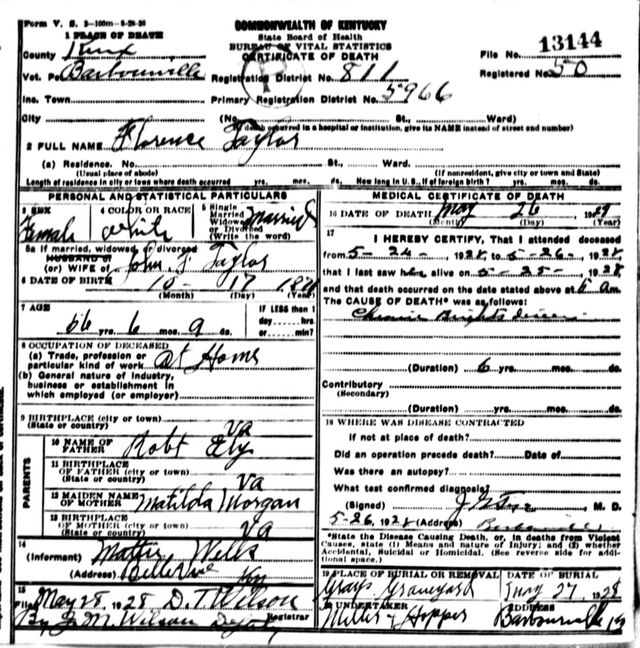 Form V. S. 3-100m-5-28-26
COMMONWEALTH OF KENTUCKY
State Board of Health
BUREAU OF VITAL STATISTICS
CERTIFICATE OF DEATH
File No. 13144
Registered No. 50
1 PLACE OF DEATH
County Knox
Vot. Barbourville
Registration District No. 811
Inc. Town
Primary Registration District No. 5966
City (No. St., Ward)
(If death occurred in a hospital or institution, give its NAME instead of street and number)
2 FULL NAME Florence Taylor
(a) Residence. No. St., Ward.
(Usual place of abode) (If nonresident, give city or town and State)
Length of residence in city or town where death occurred yrs. mos. ds. How long in U. S., if of foreign birth? yrs. mos. ds.
PERSONAL AND STATISTICAL PARTICULARS
3 SEX Female
4 COLOR OR RACE White
5 Single Married Widowed or Divorced (Write the word) Married
5a If married, widowed, or divorced
HUSBAND OF
(or) WIFE OF John F. Taylor
6 DATE OF BIRTH 10-17
(Month) (Day) (Year)
7 AGE 56 yrs. 6 mos. 9 ds.
IF LESS than 1 day, hrs. or min?
8 OCCUPATION OF DECEASED
(a) Trade, profession or particular kind of work At Home
(b) General nature of industry, business or establishment in which employed (or employer)
9 BIRTHPLACE (city or town)
(State or country) Va
PARENTS
10 NAME OF FATHER Robt Ely
11 BIRTHPLACE OF FATHER (city or town)
(State or country) Va
12 MAIDEN NAME OF MOTHER Matilda Morgan
13 BIRTHPLACE OF MOTHER (city or town)
(State or country) Va
14
(Informant) Wells
(Address) Ky
15
Filed May 28 1928 D. T. Wilson
By M. Wilson Registrar
MEDICAL CERTIFICATE OF DEATH
16 DATE OF DEATH May 26
(Month) (Day) (Year)
17
I HEREBY CERTIFY, That I attended deceased
from 5-24-, 1928 5-26-, 1928
that I last saw her alive on 5-25-, 1928
and that death occurred on the date stated above at 6 am.
The CAUSE OF DEATH* was as follows:
Chronic Brights disease
(Duration) 6 yrs. mos. ds.
Contributory
(Secondary)
(Duration) yrs. mos. ds.
18 WHERE WAS DISEASE CONTRACTED
If not at place of death?
Did an operation precede death? Date of
Was there an autopsy?
What test confirmed diagnosis?
(Signed) M. D.
5-26, 1928 (Address)
*State the Disease Causing Death, or, in deaths from Violent Causes, state (1) Means and nature of Injury; and (2) whether Accidental, Suicidal or Homicidal. (See reverse side for additional space.)
19 PLACE OF BURIAL OR REMOVAL Grays Graveyard
DATE OF BURIAL May 27, 1928
20 UNDERTAKER Miller & Hopper
ADDRESS Barbourville Ky